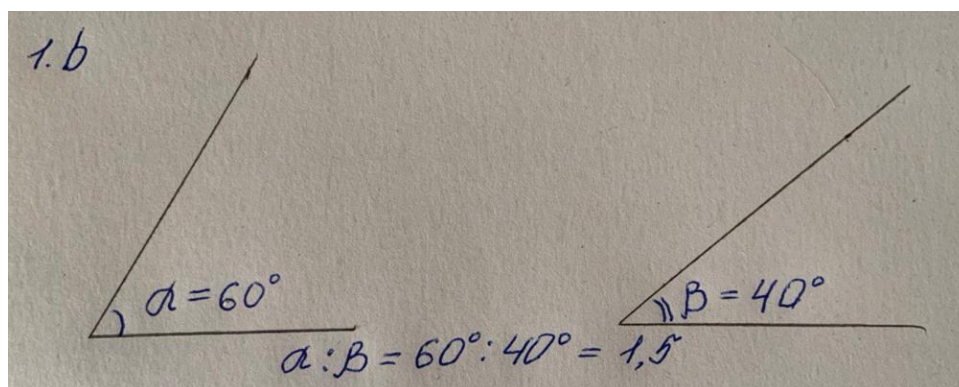 1. b
α = 60°
β = 40°
α : β = 60° : 40° = 1,5